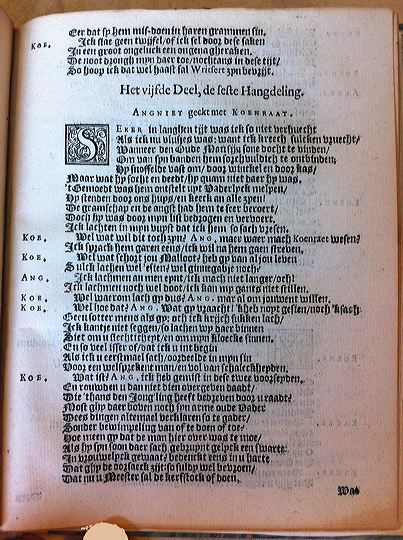 Eer dat sy hem mis-doen in haren grammen sin.
KOE. Ick stae geen twijfel/ of ick sel door dese saken
In een groot ongeluck een ongenagh raken.
De noot drongh mijn daer toe/ nochtans in dese tijt/
So hoop ick dat wel haast sal Writsert zijn bevrijt.
Het vijfde Deel, de seste Handgeling.
ANGNIET geckt met KOENRAAT.
SEKER in langhen tijt was ick so niet verheucht
Als ick nu vlusjes was: want ick kreegh sulcken vreucht/
Wanneer den Oude Man sijn sone docht te vinden/
Om van syn banden hem sorchvuldich te ontbinden;
Hy snoffelde vast om/ door winckel en door kas/
Maar wat hy socht en deed/ hy quam niet daer hy was.
't Gemoedt was hem ontstelt upt Vaderlyck
Hy stenden door ons huys/ en keeck an alle zyen/
De gramschap en de angst had hem te seer beroert/
Doch hy was door mijn list bedrogen en vervoert.
Ick lachten in mijn vuyst dat ick hem so sach vresen.
KOE. Wel wat wil dit toch zyn? ANG. maer waer mach Koenraet wesen?
Ick sprack hem garen eens/ ick wil na hem gaen streven.
KOE. Wel wat schort jou Malloot? heb gy van al jou leven
Sulck lachen wel 'esien/ wel ginnegabje noch?
ANG. Ick lachmen an men eynt/ ick mach niet langer/ och!
Ick lachmen noch wel doot/ ick kan my gants niet stillen.
KOE. Wel waerom lach gy dus? ANG. mar al om jouwent willen.
KOE. Wel hoe dat? ANG. Wat gy vraacht! 'k heb noyt gesien/ noch 'k sach
Geen sotter mens als gy: och ick krijch sukken lach/
Ick kantje niet seggen/ so lachen wy daer binnen
Niet om u slechticheyt/ en om mijn kloecke sinnen.
En so veel isser of/ dat ick u int begin
Als ick u eerstmael sach/ oordeelde in mijn sin
Voor een welsprekent man/ en vol van schalckheyden.
KOE. Wat ist? ANG. ick heb gemist in dese twee voorseyden.
En rouwden u dan niet dien overgeven daadt/
Die 'thans den Jongeling heeft bedreven door u raadt?
Most ghy daer boven noch syn arme oude Vader
Dees dingen altemael verklaren so te gader/
Sonder bewimpeling van of te doen of toe?
Hoe meen gy dat de man hier over was te moe/
Als hy syn soon daer sach gebruynt gelyck een swarte
In vrouwelyck gewaat? bedenckt eens in u harte
Dat ghy de oorsaeck zijt: so suldy wel bevroen/
Dat nu u Meester sal de kerfstock of doen.
Wat